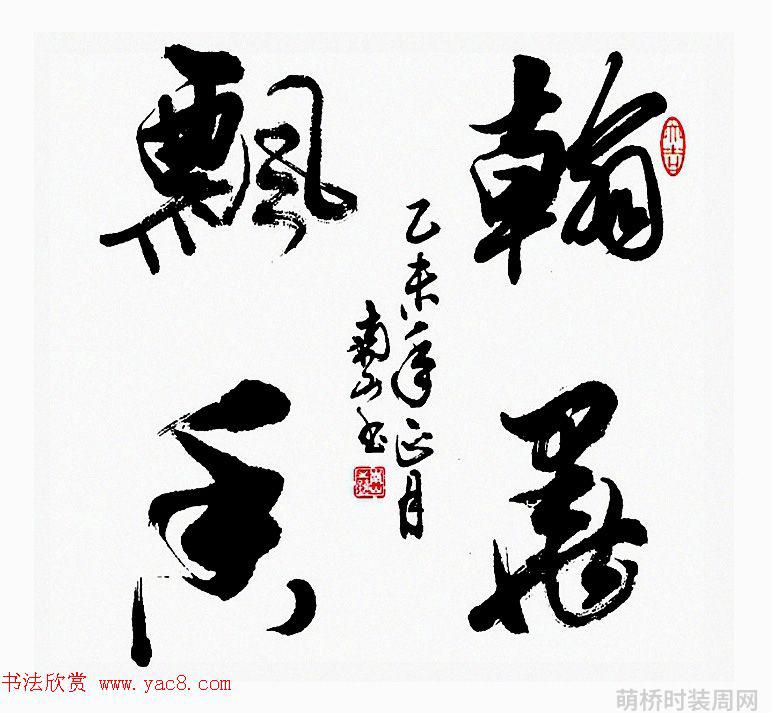 翰墨
飄香
乙未年正月
南山书
大吉
书法欣赏 www.yac8.com
萌桥时装周网